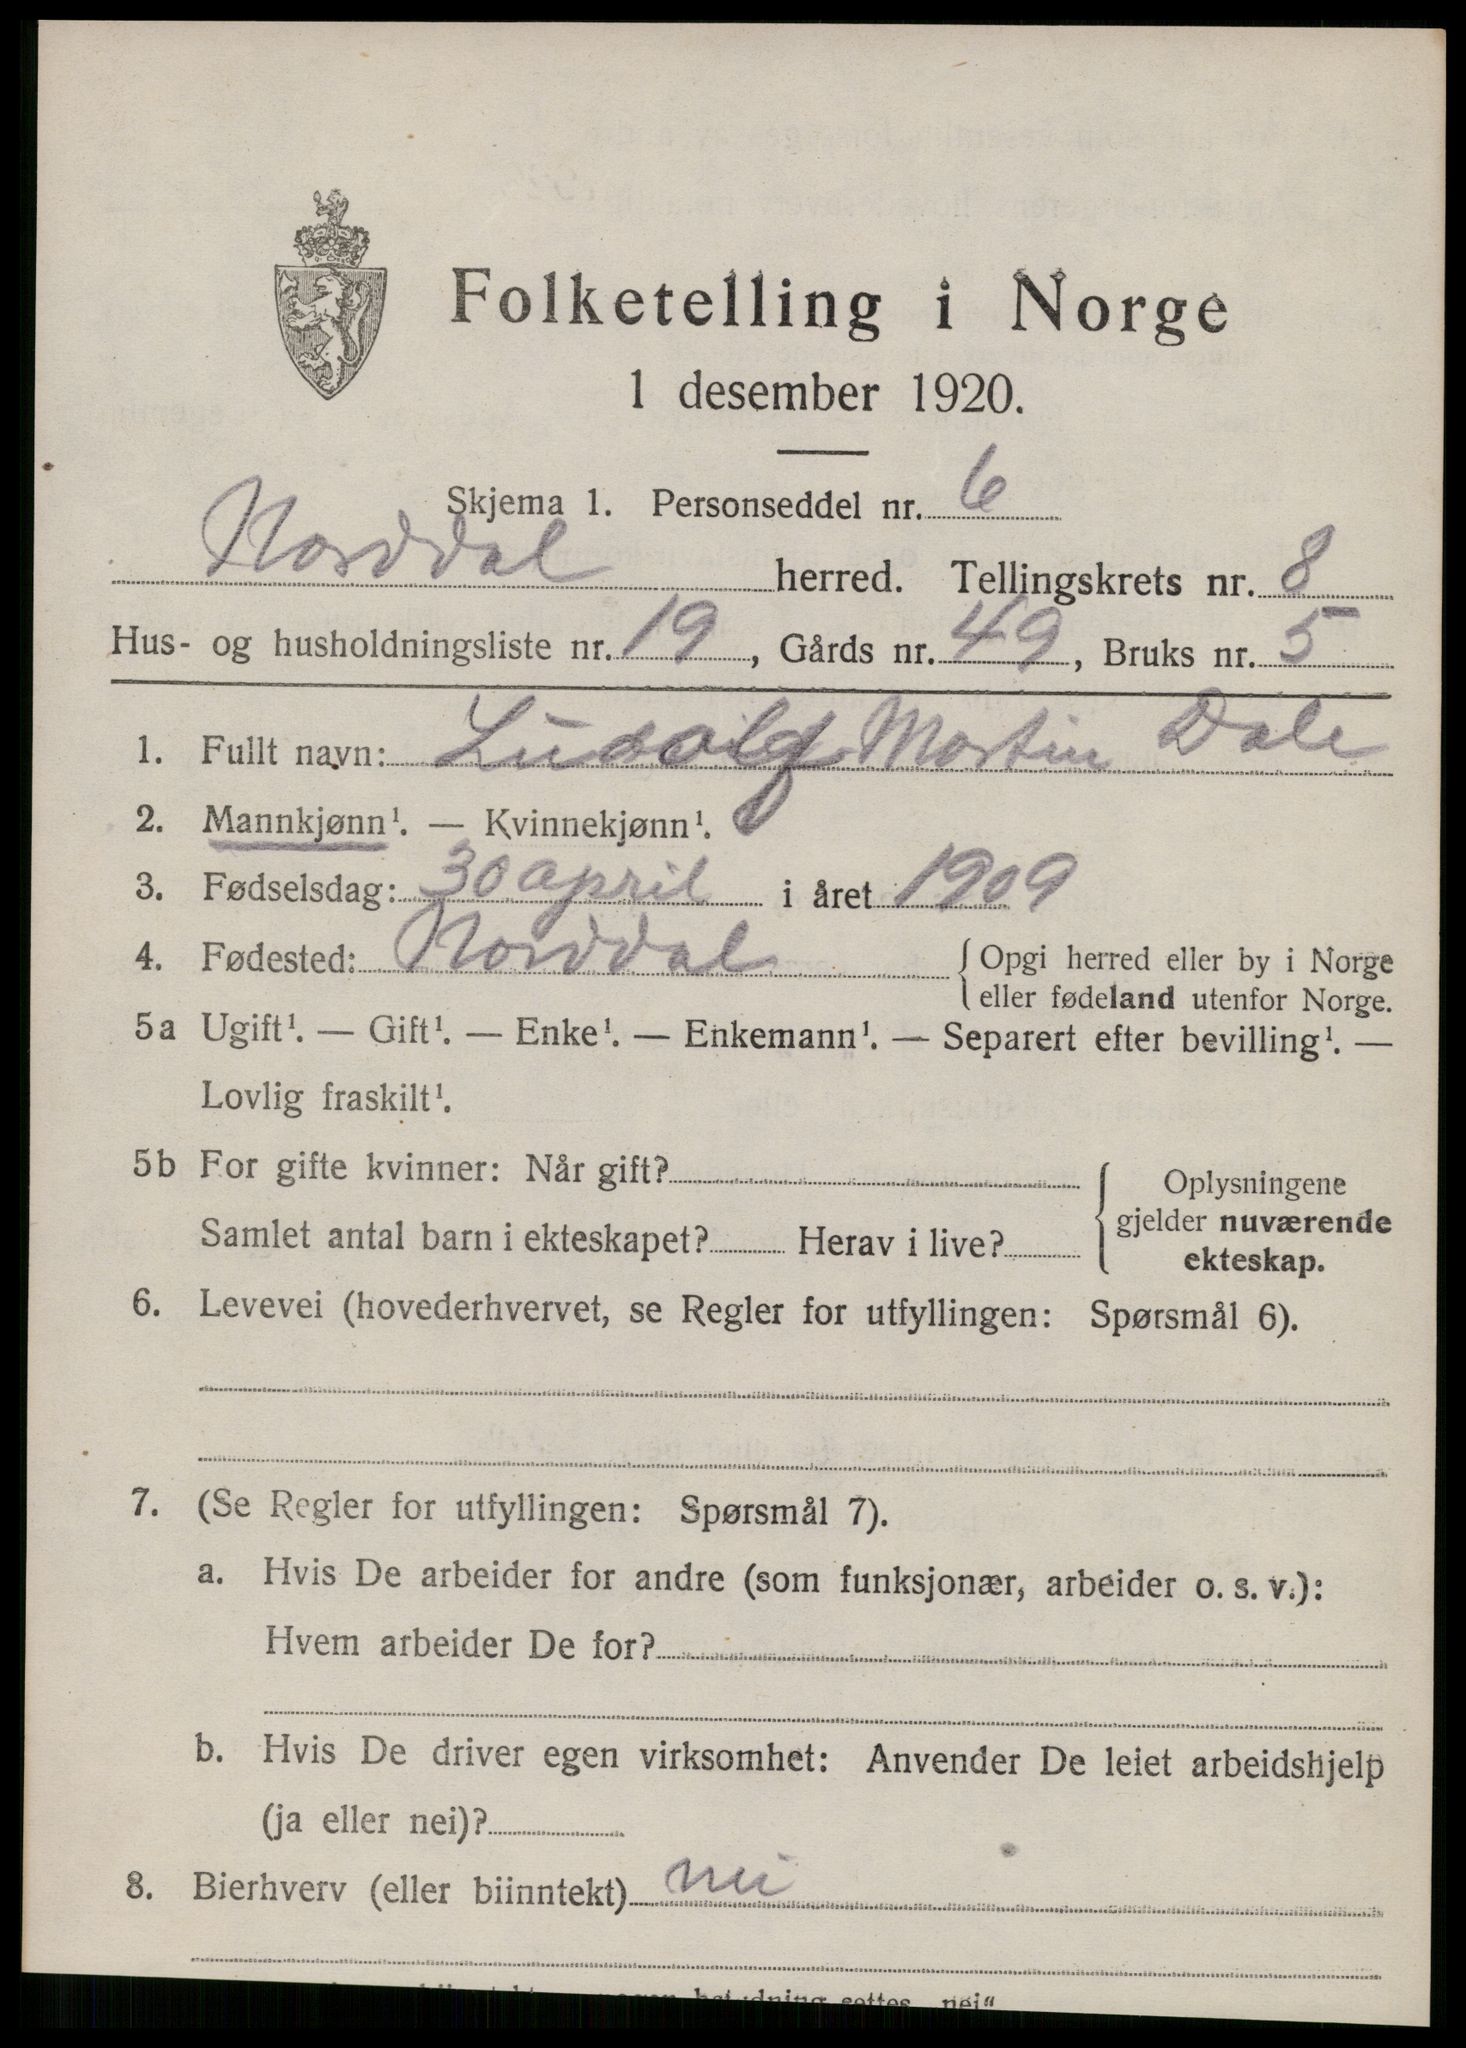 Folketelling i Norge
1 desember 1920.
Skjema 1. Personseddel nr. 6
Norddal herred. Tellingskrets nr. 8
Hus- og husholdningsliste nr. 19, Gårds nr. 49, Bruks nr. 5
1. Fullt navn: Ludolf Martin Dale
2. Mannkjønn¹. — Kvinnekjønn¹.
3. Fødselsdag: 30 april i året 1909
4. Fødested: Norddal { Opgi herred eller by i Norge
eller fødeland utenfor Norge.
5a Ugift¹. — Gift¹. — Enke¹. — Enkemann¹. — Separert efter bevilling¹. —
Lovlig fraskilt¹.
5b For gifte kvinner: Når gift? { Oplysningene
gjelder nuværende
Samlet antal barn i ekteskapet? Herav i live?
ekteskap.
6. Levevei (hovederhvervet, se Regler for utfyllingen: Spørsmål 6).
7. (Se Regler for utfyllingen: Spørsmål 7).
a. Hvis De arbeider for andre (som funksjonær, arbeider o. s. v.):
Hvem arbeider De for?
b. Hvis De driver egen virksomhet: Anvender De leiet arbeidshjelp
(ja eller nei)?
8. Bierhverv (eller biinntekt) nei
betydning settes „nei“